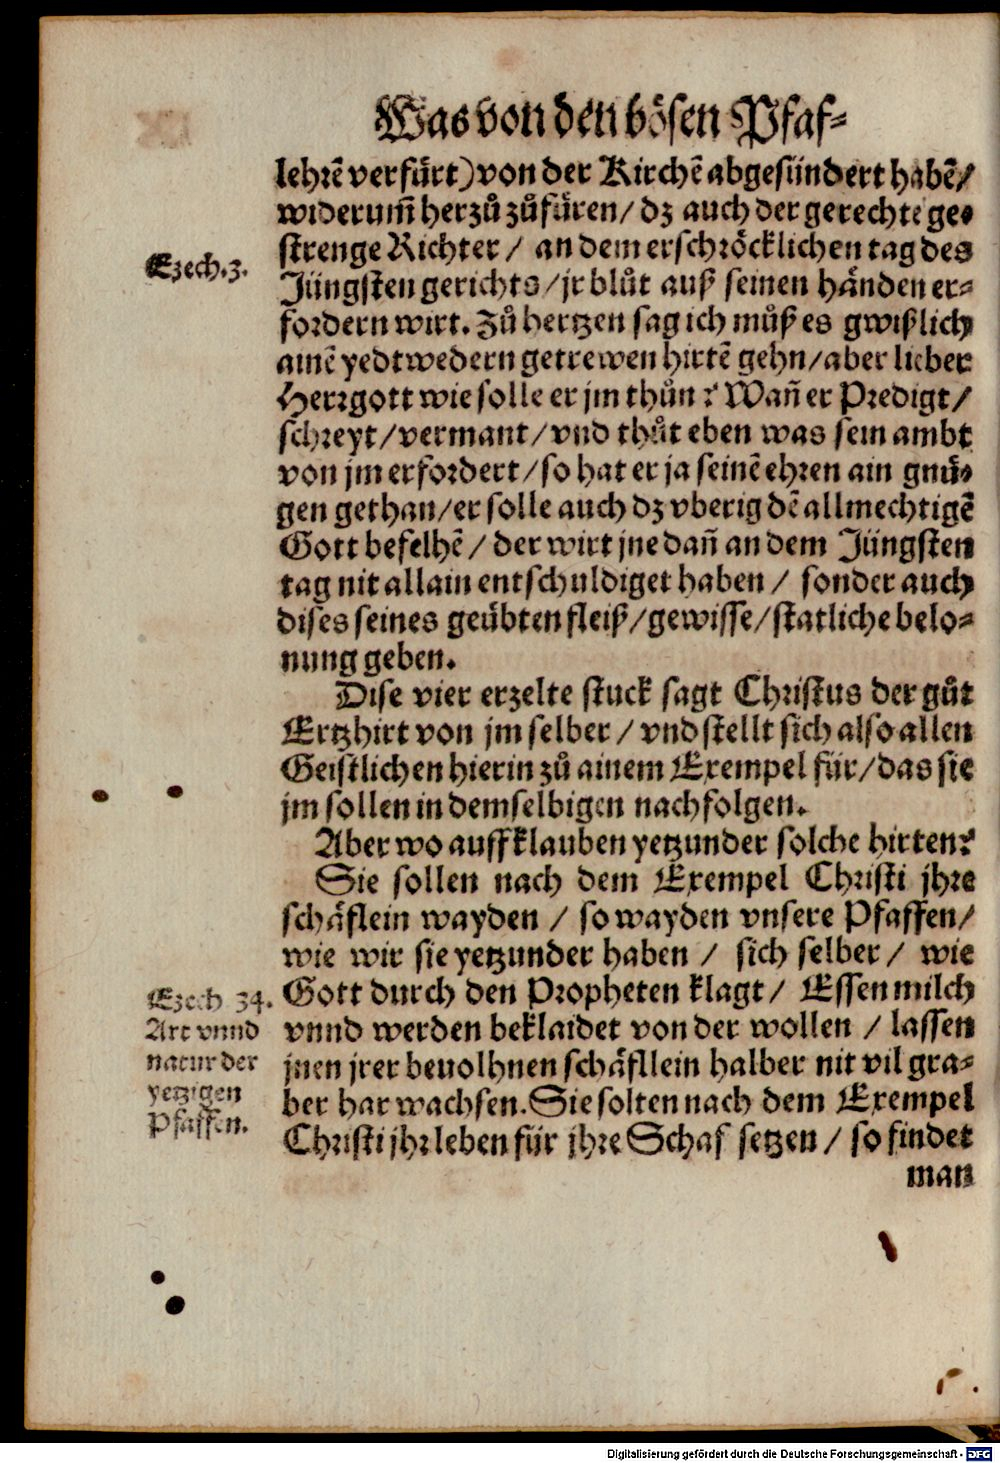 Was von den bösen Pfaf⸗
lehrẽ verfuͤrt) von der Kirchẽ abgesündert habẽ/
widerum̃ herzuͦ zuͦfuͤren/ dz auch der gerechte ge⸗
strenge Richter / an dem erschröcklichen tag des
Ezech.3.
Jüngsten gerichts/ jr bluͦt auß seinen händen er⸗
fordern wirt. Zuͦ hertzen sag ich muͦß es gwißlich
ainẽ yedtwedern getrewen hirtẽ gehn/ aber lieber
Herrgott wie solle er jm thuͦn? Wañ er Predigt/
schreyt/ vermant/ vnd thuͦt eben was sein ambt
von jm erfordert/ so hat er ja seinẽ ehren ain gnuͦ⸗
gen gethan/ er solle auch dz vberig dẽ allmechtigẽ
Gott befelhẽ / der wirt jne dañ an dem Jüngsten
tag nit allain entschuldiget haben / sonder auch
dises seines geuͤbten fleiß/ gewisse/ statliche belo⸗
nung geben.
Dise vier erzelte stuck sagt Christus der guͦt
Ertzhirt von jm selber / vnd stellt sich also allen
Geistlichen hierin zuͦ ainem Exempel für/ das sie
jm sollen in demselbigen nachfolgen.
Aber wo auffklauben yetzunder solche hirten?
Sie sollen nach dem Exempel Christi jhre
schäflein wayden / so wayden vnsere Pfaffen/
wie wir sie yetzunder haben / sich selber / wie
Ezech 34.
Gott durch den Propheten klagt / Essen milch
Art vnnd
natur der
yetzigen
Pfaffen.
vnnd werden beklaidet von der wollen / lassen
jnen jrer beuolhnen schäfllein halber nit vil gra⸗
ber har wachsen. Sie solten nach dem Exempel
Christi jhr leben für jhre Schaf setzen / so findet
man
Digitalisierung gefördert durch die Deutsche Forschungsgemeinschaft - DFG